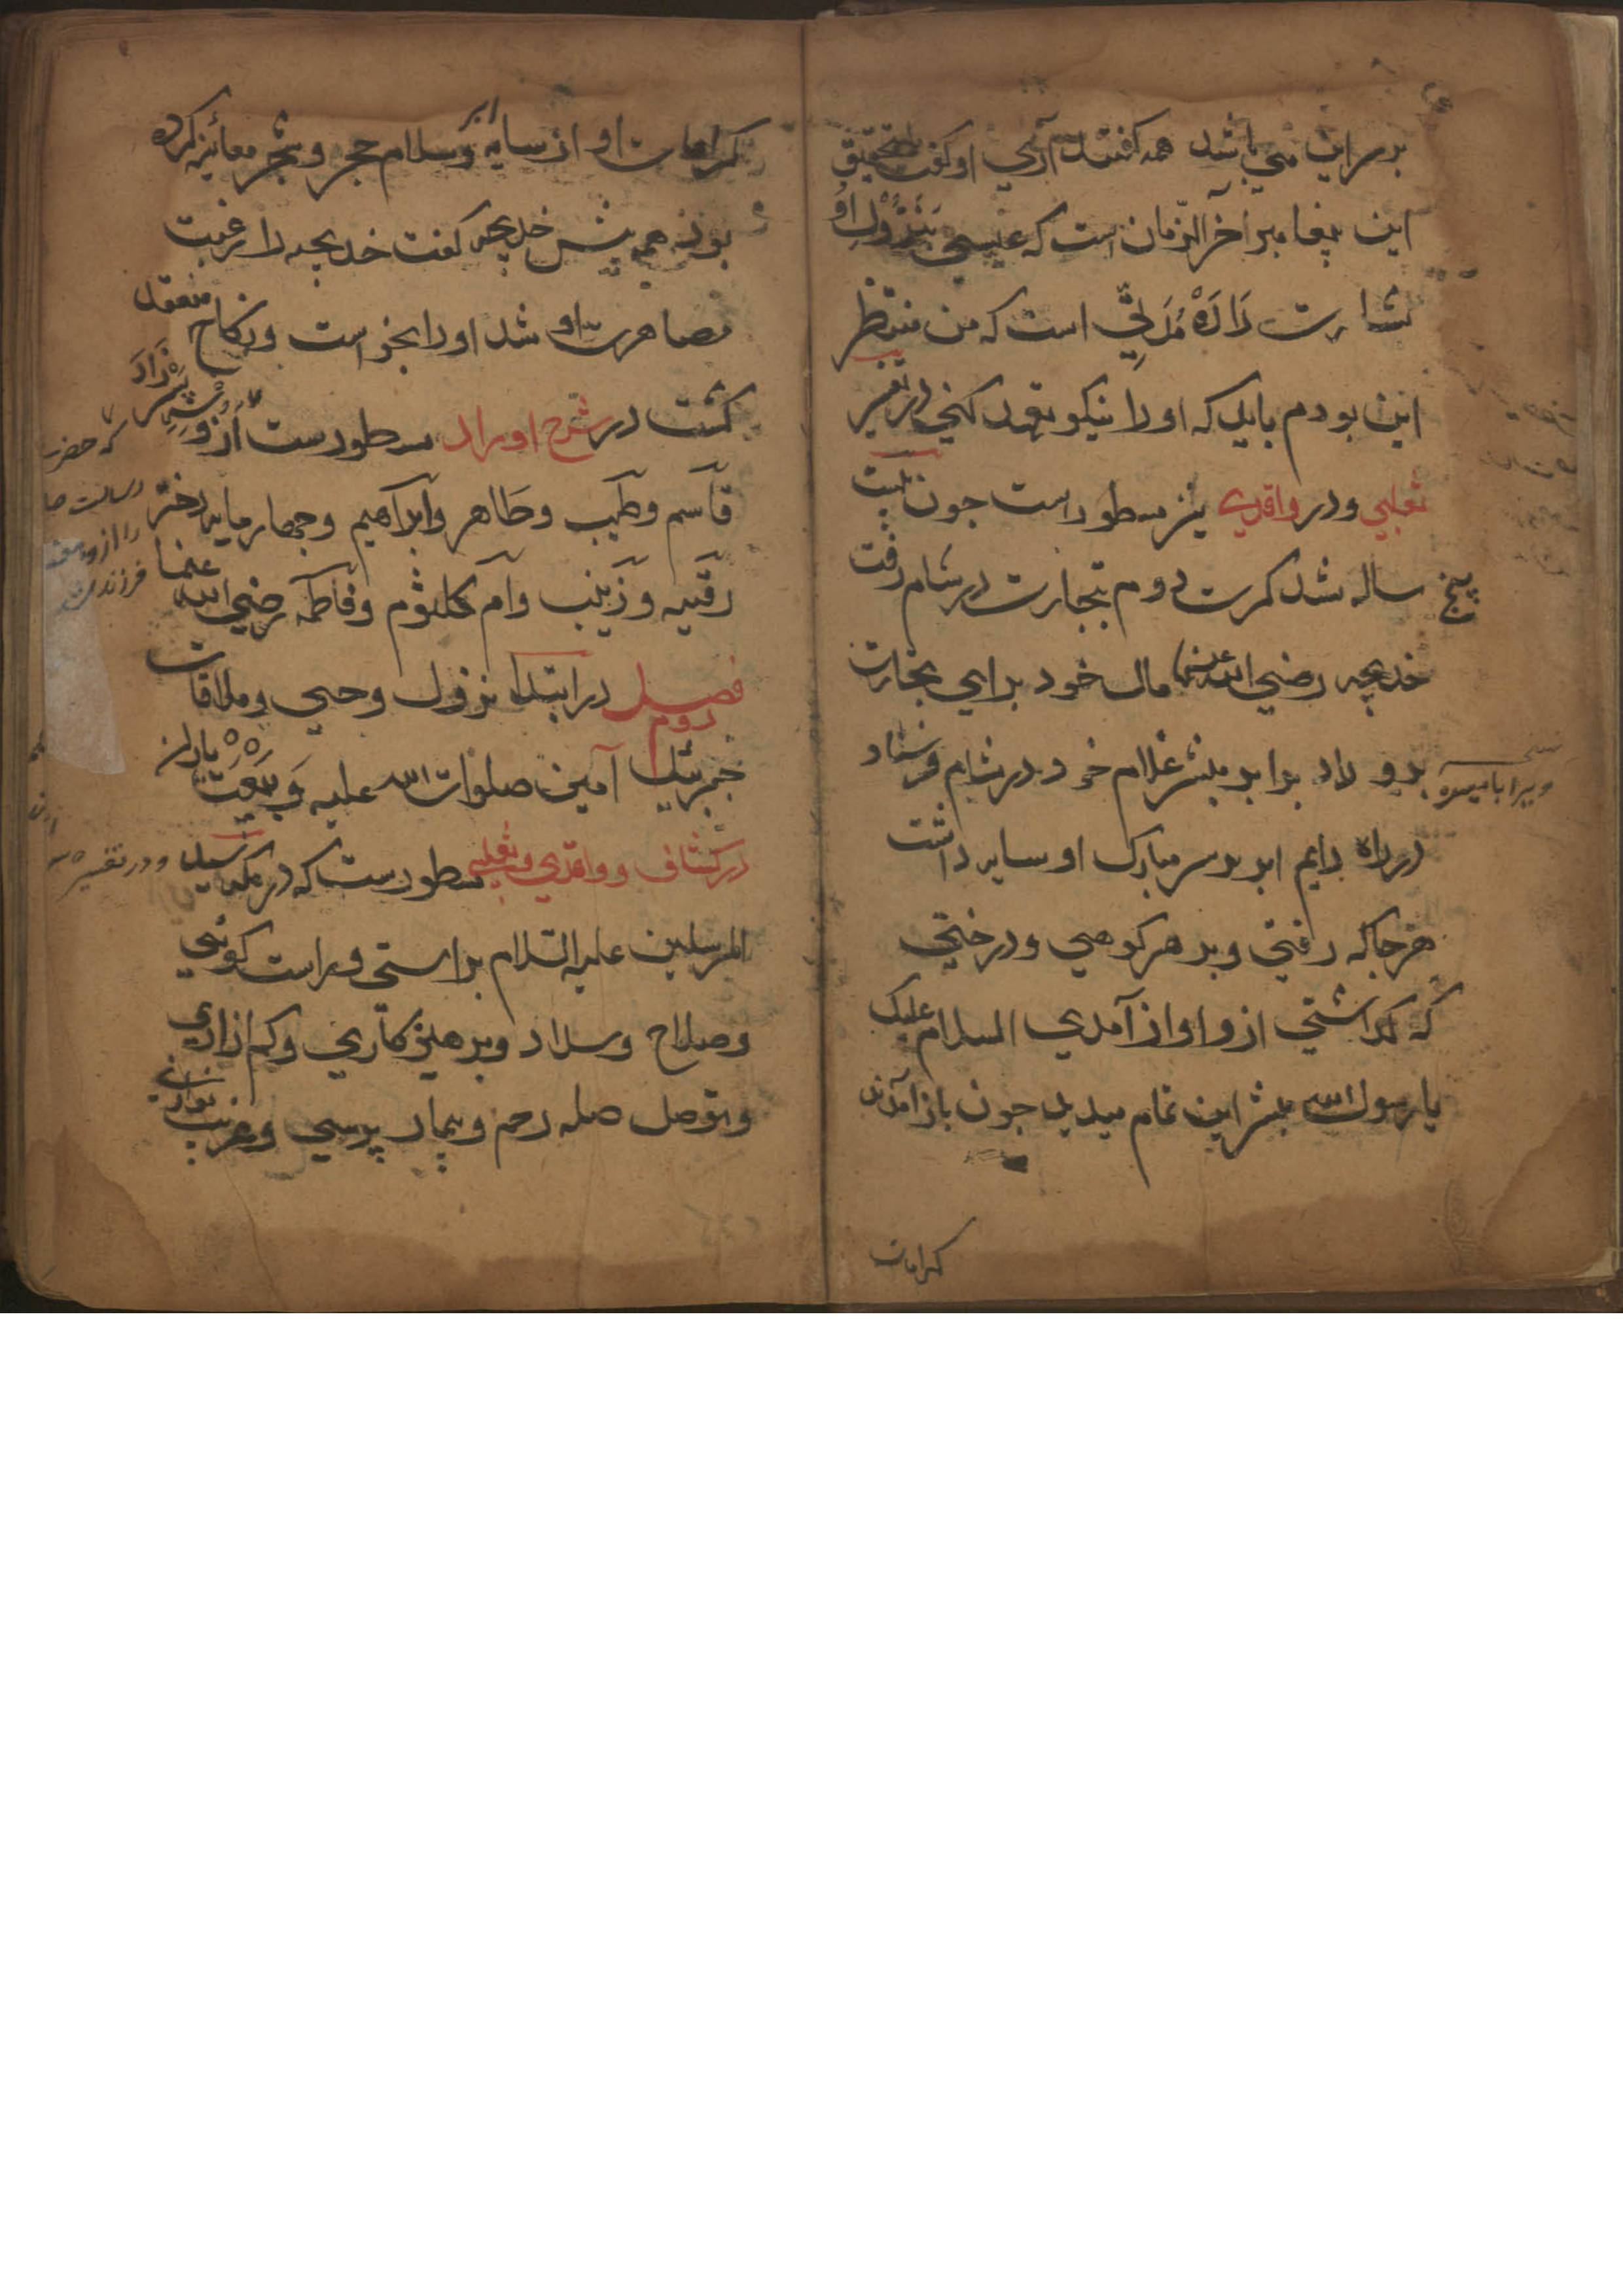 بر سر این می باشد همه گفتند آری او گفت تحقیق
این پیغامبر آخر الزمان است که عیسی بنزول او
بشارت داده مدتی است که من منتظر
این بودم باید که او را نیکو تعهد کنی در تفسیر
ثعلبی و در واقدی نیز مسطور است چون بیست
پنج ساله شد کرت دوم بتجارت در شام رفت
خدیجه رضی الله عنها مال خود برای تجارت
بدو داد برابر میشر غلام خود در شام فرستاد
در راه دایم ابر بر سر مبارک او سایه داشت
هر جا که رفتی و بر هر کوهی و درختی
که گذاشتی ازو اواز آمدی السلام علیک
یا رسول الله میشر این تمام میدید چون باز آمدند
کرامات
کرامات او از سایه ابر و سلام حجر و شجر معائنه کرده
بود همه پیش خدیجه گفت خدیجه را رغبت
مصاهرت او شد او را بخواست و نکاح منعقد
گشت در شرح اوراد مسطورست ازو سه پسر زاد
قاسم و طیب و طاهر و ابراهیم و چهار ماریه دختر
رقیه و زینب و ام کلثوم و فاطمه رضی الله عنها
که حضرت
رسالت
را ازو
فرزند
فصل دوم در ابتدا نزول وحی و ملاقات
جبرئیل امین صلوات الله علیه و بیعت یاران
در کشاف و واقدی و ثعلبی مسطورست که در مکه سید
و در تفسیر
المرسلین علیه السلام براستی و راست گوئی
و صلاح و سداد و پرهیز کاری و کم ازاری
و توصل صله رحم و بیمار پرسی و غریب نوازی